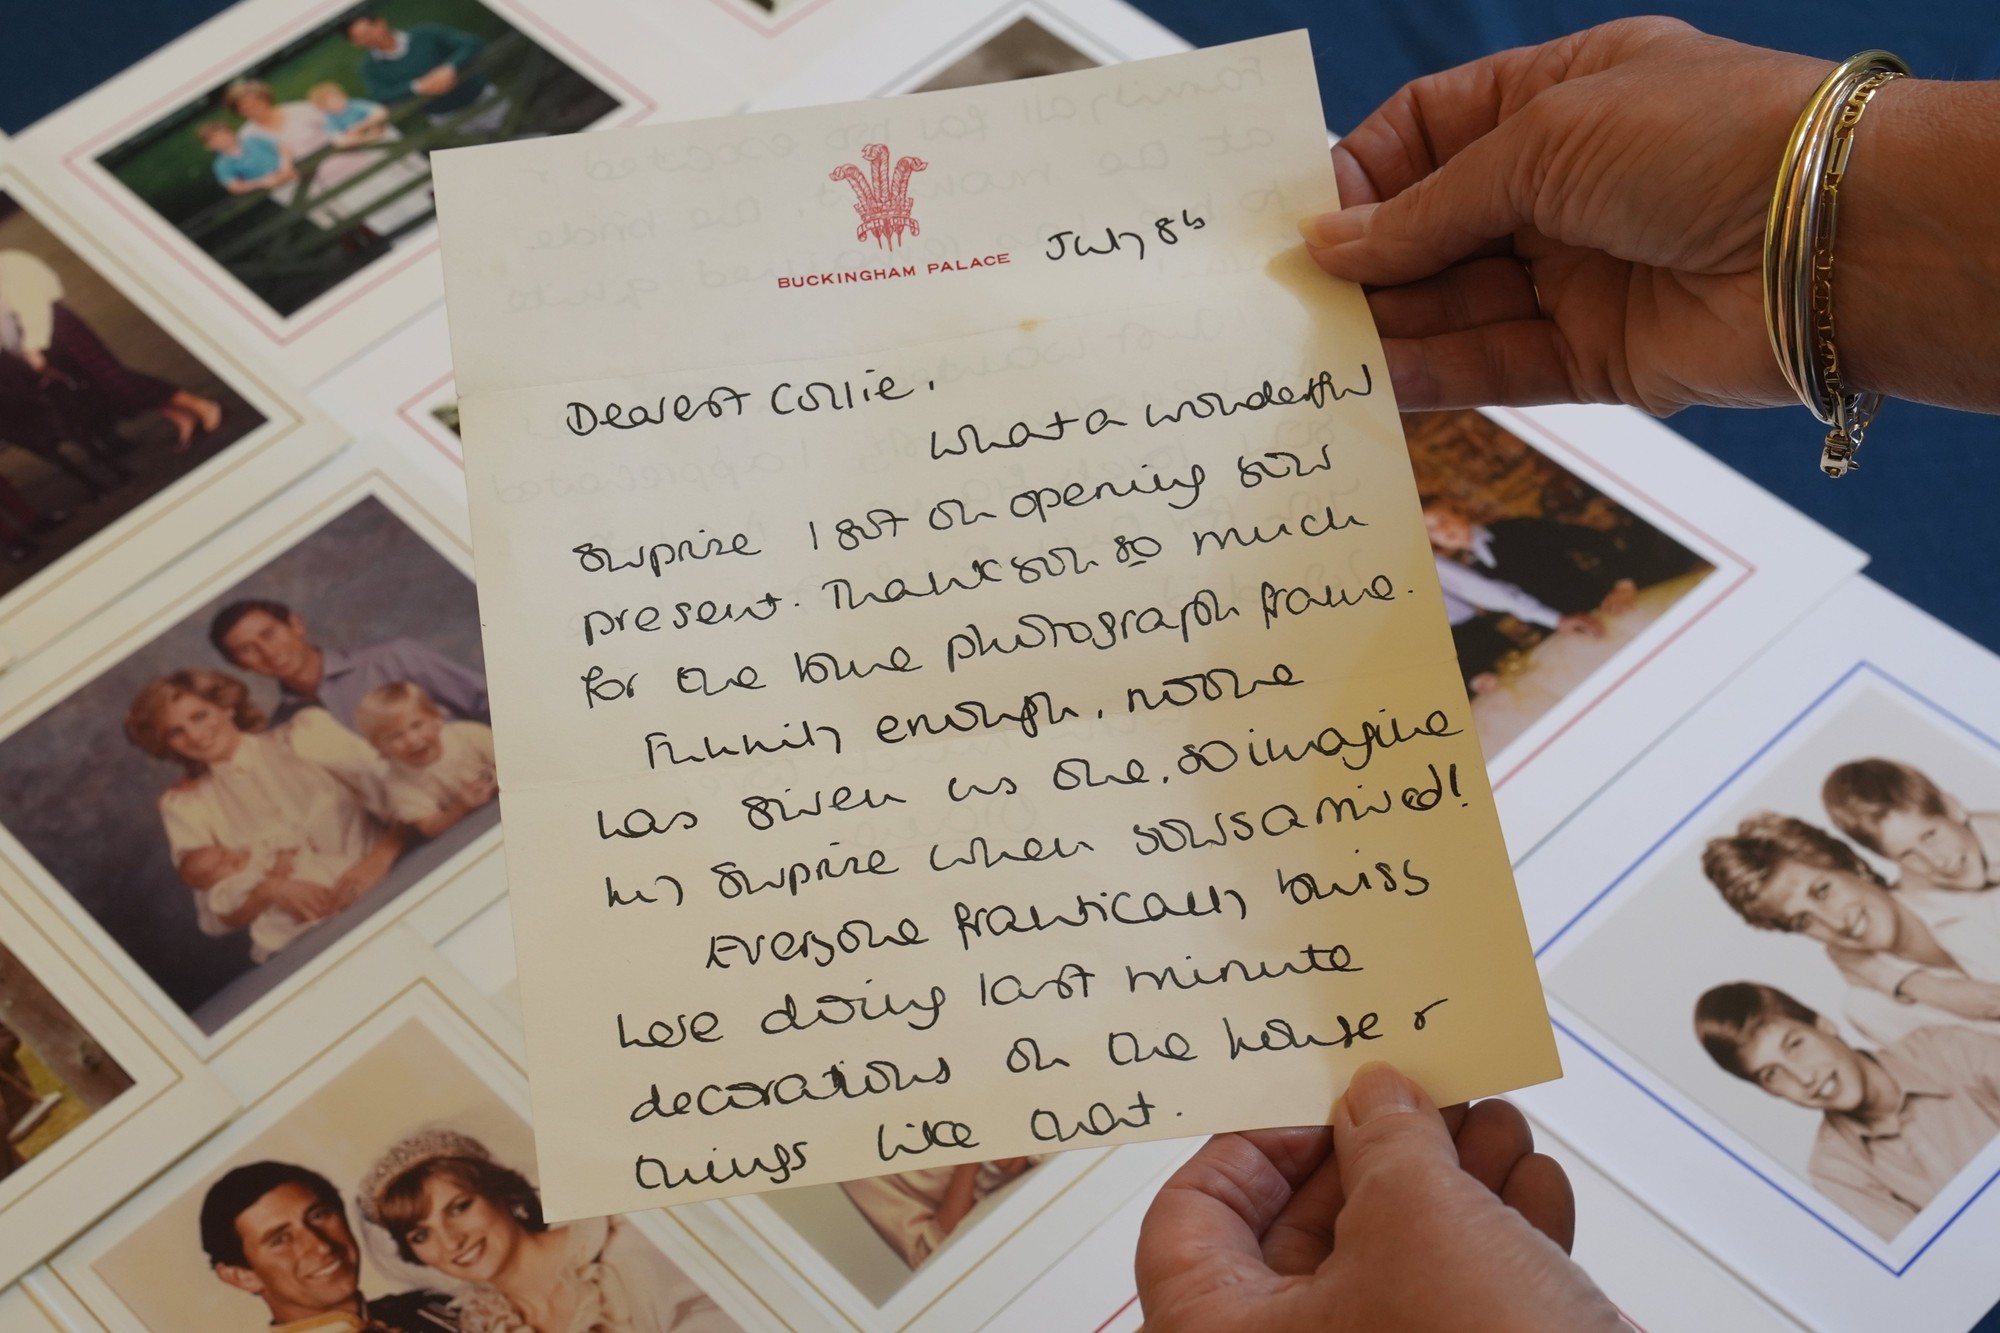 BUCKINGHAM PALACE
July 86
Dearest Collie,
What a wonderful
surprise I got on opening your
present. Thank you so much
for the lome photograph frame.
Funnily enough, noone
has given us one, so imagine
my surprise when yours arrived!
Everyone frantically busy
here doing last minute
decorations on the house &
things like that.